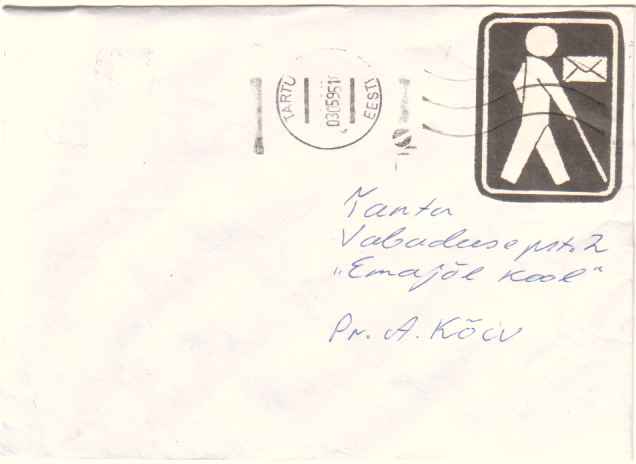 TARTU
030595
EESTI
Tartu
Vabaduse pst. 2
"Emajõe Kool"
Pr. A. Kõiv